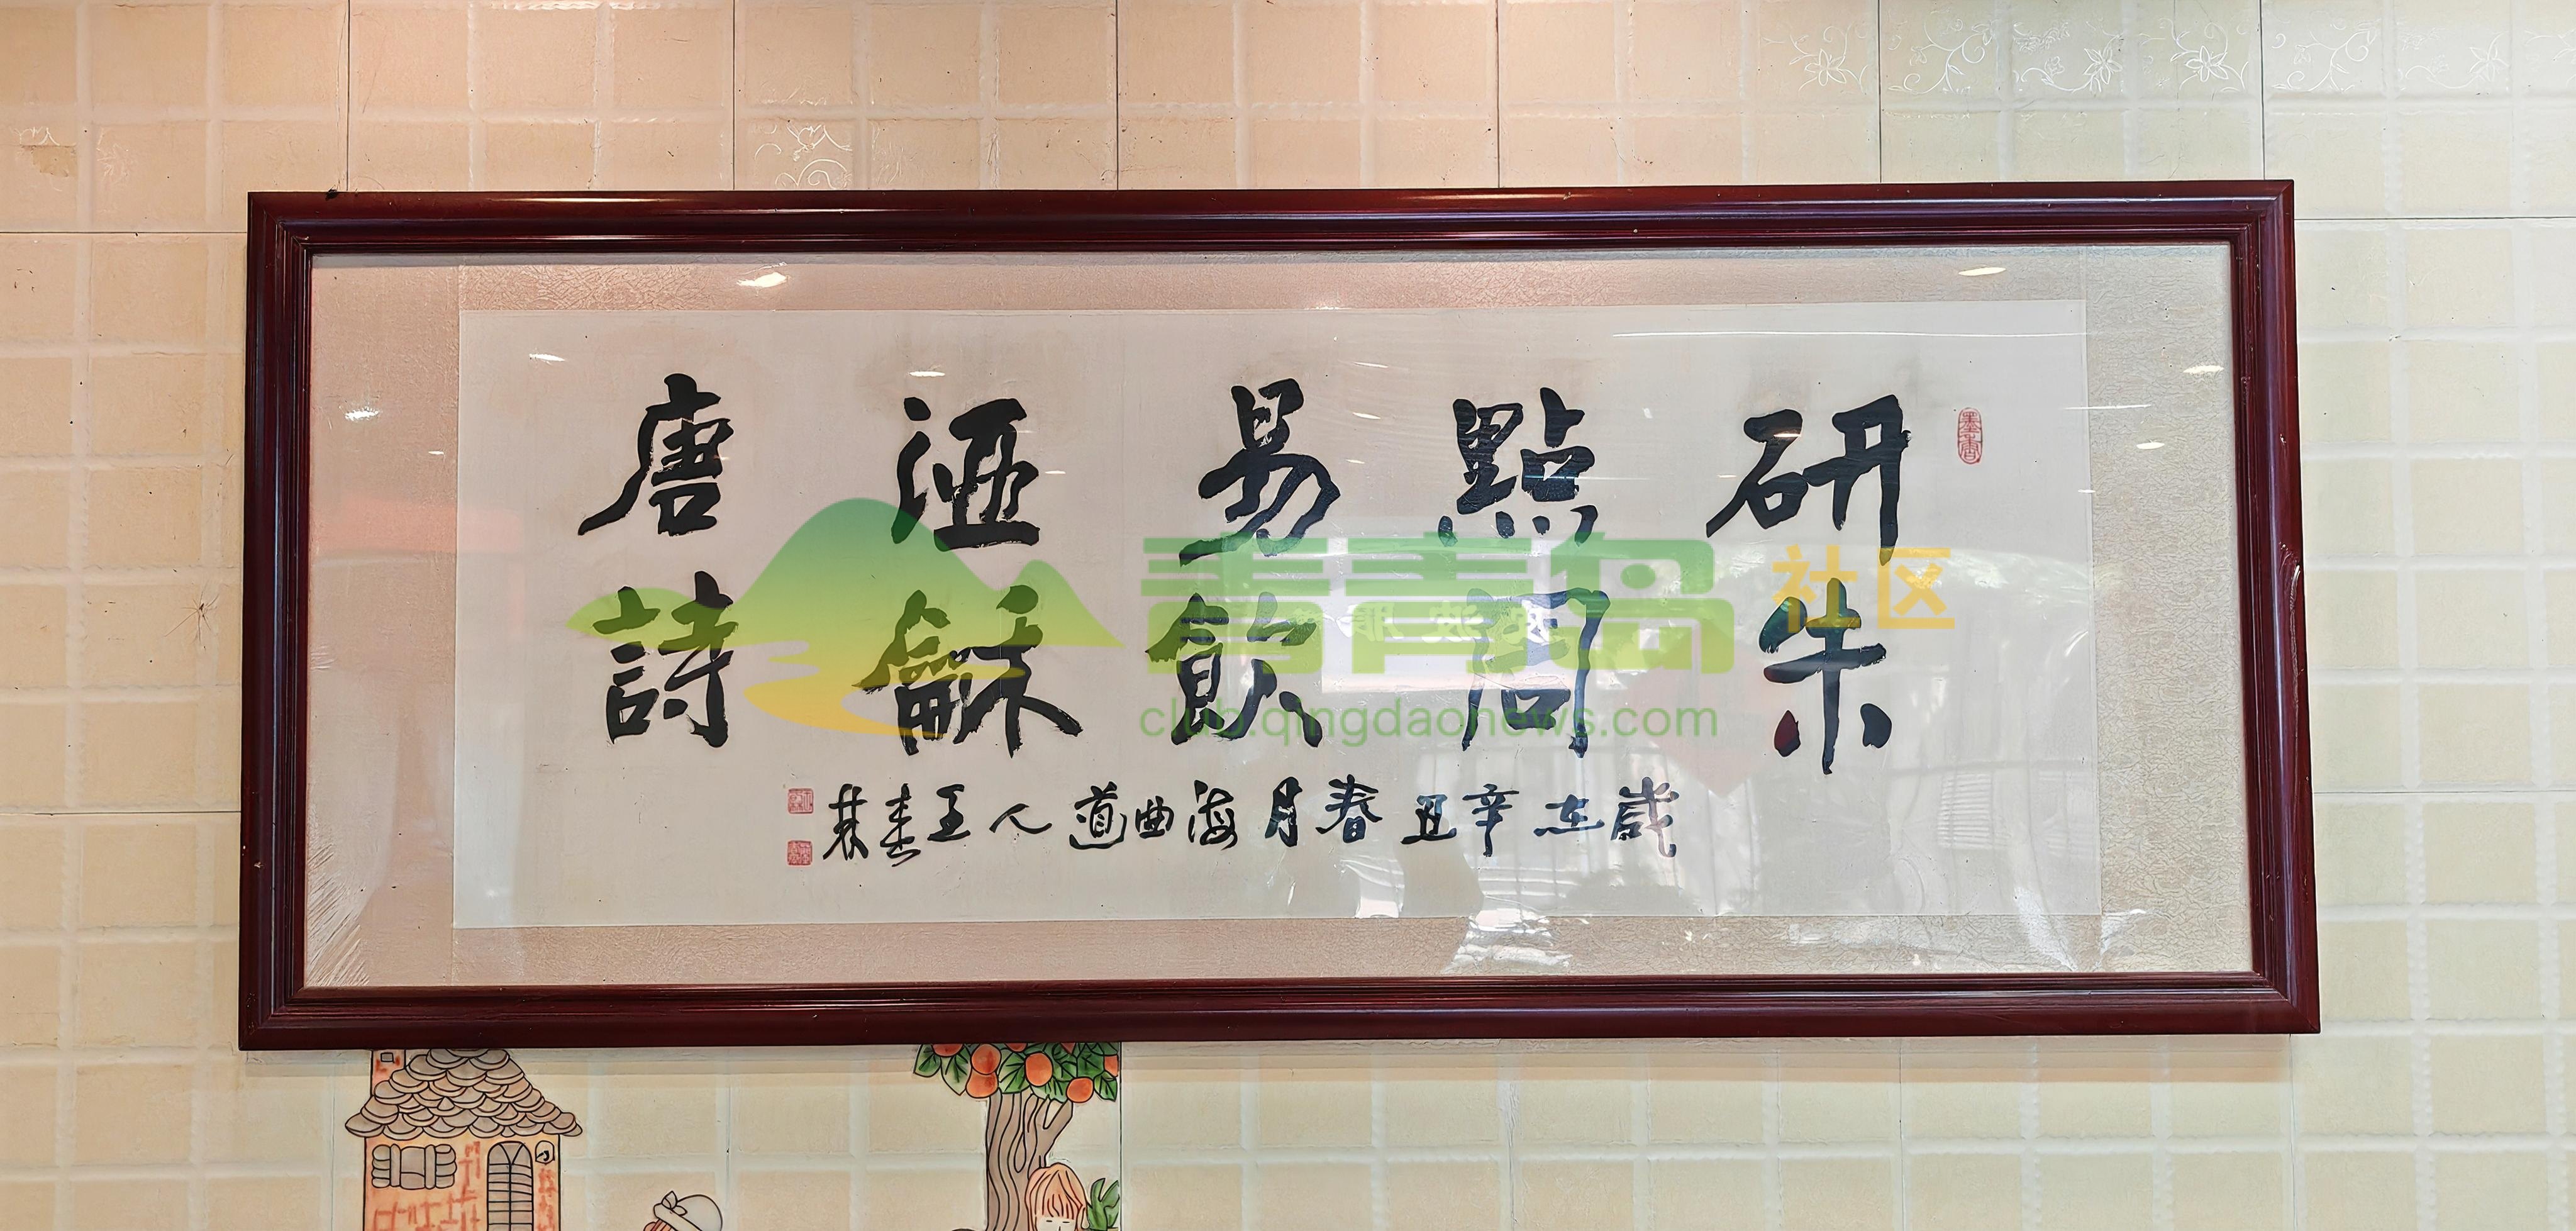 墨香
研朱
點周
易飲
酒龢
唐詩
歲在辛丑春月海曲道人王
青青岛社区
club.qingdaonews.com